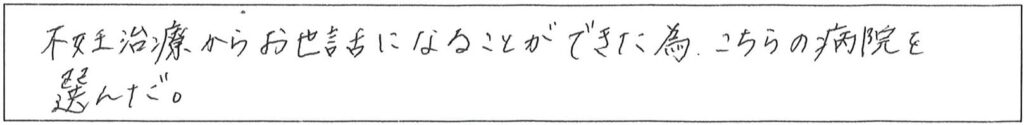 不妊治療からお世話になることができた為、こちらの病院を
選んだ。